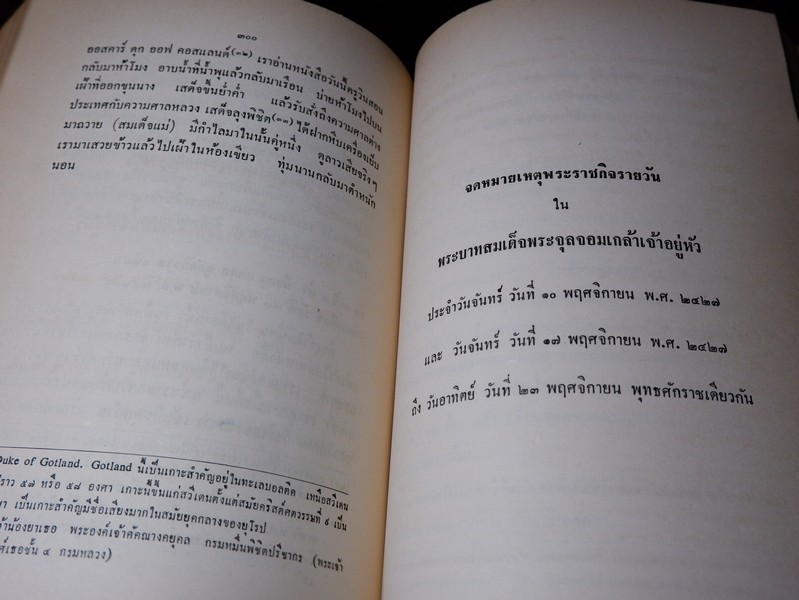 ๓๐๐
ออสคาร์ ดุก ออฟ คอสแลนด์(๓๒) เราอ่านหนังสือวันนี้ครูวินสอน
กลับมาห้าโมง อาบน้ำที่น้ำพุแล้วกลับมาเรือน บ่ายห้าโมงไปบน
เฝ้าที่ออกขุนนาง เสด็จขึ้นย่ำค่ำ แล้วรับสั่งถึงความศาลต่าง
ประเทศกับความศาลหลวง เสด็จลุงพิชิต(๓๓) ได้ฝากหีบเครื่องเย็บ
มาถวาย (สมเด็จแม่) มีกำไลมาในนั้นคู่หนึ่ง ดูลาวเสียจริงๆ
เรามาเสวยข้าวแล้วไปเฝ้าในห้องเขียว ทุ่มนานกลับมาตำหนัก
นอน
Duke of Gotland. Gotland นี้เป็นเกาะสำคัญอยู่ในทะเลบอลติค เหนือสวีเดน
ราว ๕๗ หรือ ๕๘ องศา เกาะนี้ขึ้นแก่สวีเดนตั้งแต่สมัยคริสต์ศตวรรษที่ ๙ เป็น
เป็นเกาะสำคัญมีชื่อเสียงมากในสมัยยุคกลางของยุโรป
น้องยาเธอ พระองค์เจ้าคัคณางคยุคล กรมหมื่นพิชิตปรีชากร (พระเจ้า
ชั้น ๔ กรมหลวง)
จดหมายเหตุพระราชกิจรายวัน
ใน
พระบาทสมเด็จพระจุลจอมเกล้าเจ้าอยู่หัว
ประจำวันจันทร์ วันที่ ๑๐ พฤศจิกายน พ.ศ. ๒๔๒๗
และ วันจันทร์ วันที่ ๑๗ พฤศจิกายน พ.ศ. ๒๔๒๗
ถึง วันอาทิตย์ วันที่ ๒๓ พฤศจิกายน พุทธศักราชเดียวกัน